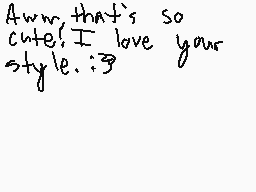 Aww, that's so
cute! I love your
style. :3